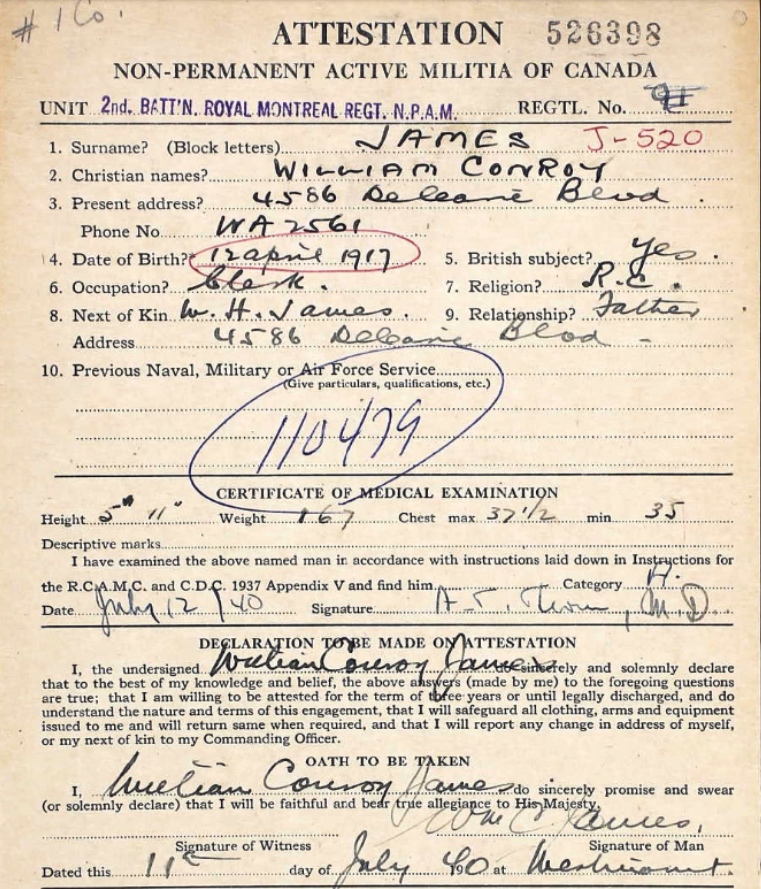 # 1 Co.
ATTESTATION 526398
NON-PERMANENT ACTIVE MILITIA OF CANADA
UNIT 2nd. BATT'N. ROYAL MONTREAL REGT. N.P.A.M. REGTL. No.
1. Surname? (Block letters) JAMES J-520
2. Christian names? WILLIAM CONROY
3. Present address? 4586 Blvd.
Phone No WA 2561
4. Date of Birth? 12 april 1917 5. British subject? Yes.
6. Occupation? Clerk. 7. Religion? R.C.
8. Next of Kin W. H. James. 9. Relationship? Father
Address 4586 Blvd -
10. Previous Naval, Military or Air Force Service
(Give particulars, qualifications, etc.)
110479
CERTIFICATE OF MEDICAL EXAMINATION
Height 5" 11" Weight 167 Chest max 37 1/2 min 35
Descriptive marks
I have examined the above named man in accordance with instructions laid down in Instructions for
the R.C.A.M.C. and C.D.C. 1937 Appendix V and find him Category A.
Date July 12/40 Signature M.D.
DECLARATION TO BE MADE ON ATTESTATION
I, the undersigned William Conroy James do sincerely and solemnly declare
that to the best of my knowledge and belief, the above answers (made by me) to the foregoing questions
are true; that I am willing to be attested for the term of three years or until legally discharged, and do
understand the nature and terms of this engagement, that I will safeguard all clothing, arms and equipment
issued to me and will return same when required, and that I will report any change in address of myself,
or my next of kin to my Commanding Officer.
OATH TO BE TAKEN
I, William Conroy James do sincerely promise and swear
(or solemnly declare) that I will be faithful and bear true allegiance to His Majesty.
Wm C. James.
Signature of Witness Signature of Man
Dated this 11th day of July 1940 at Westmount.